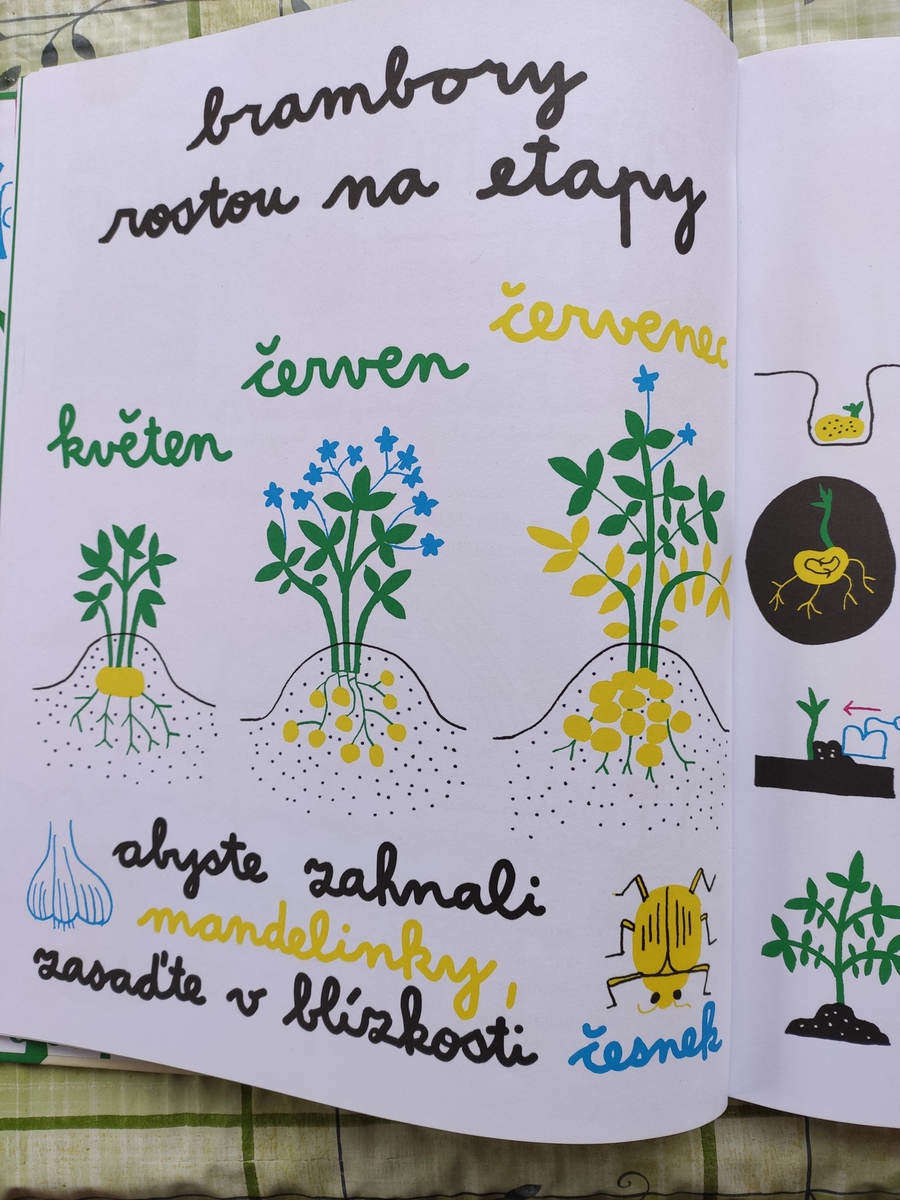 brambory
rostou na etapy
květen
červen
červenec
abyste zahnali
mandelinky,
zasaďte v blízkosti
česnek